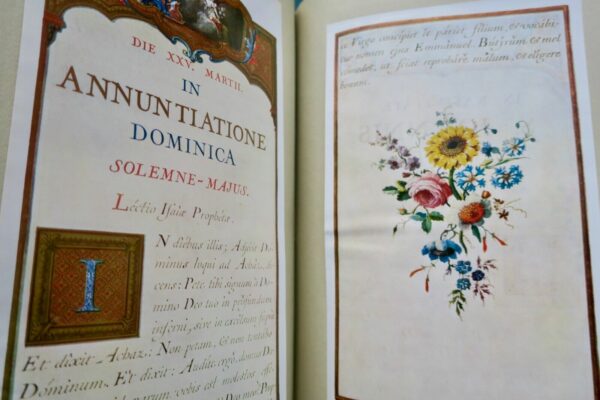 DIE XXV. MARTII.
IN
ANNUNTIATIONE
DOMINICA
SOLEMNE-MAJUS.
Léctio Isaiæ Prophétæ.
IN diébus illis; Adjécit Dó-
minus loqui ad Achaz, di-
cens: Pete tibi signum a Dó-
mino Deo tuo in profúndum
inférni, sive in excélsum supra.
Et dixit Achaz: Non petam, & non tentábo
Dóminum. Et dixit: Audíte ergo, domus Da-
parum vobis est moléstos esse
Dóminus Deo meo? Prop-
ce Virgo concípiet & páriet fílium, & vocábi-
tur nomen ejus Emmánuel. Bútyrum & mel
cómedet, ut sciat reprobáre malum, & elígere
bonum.